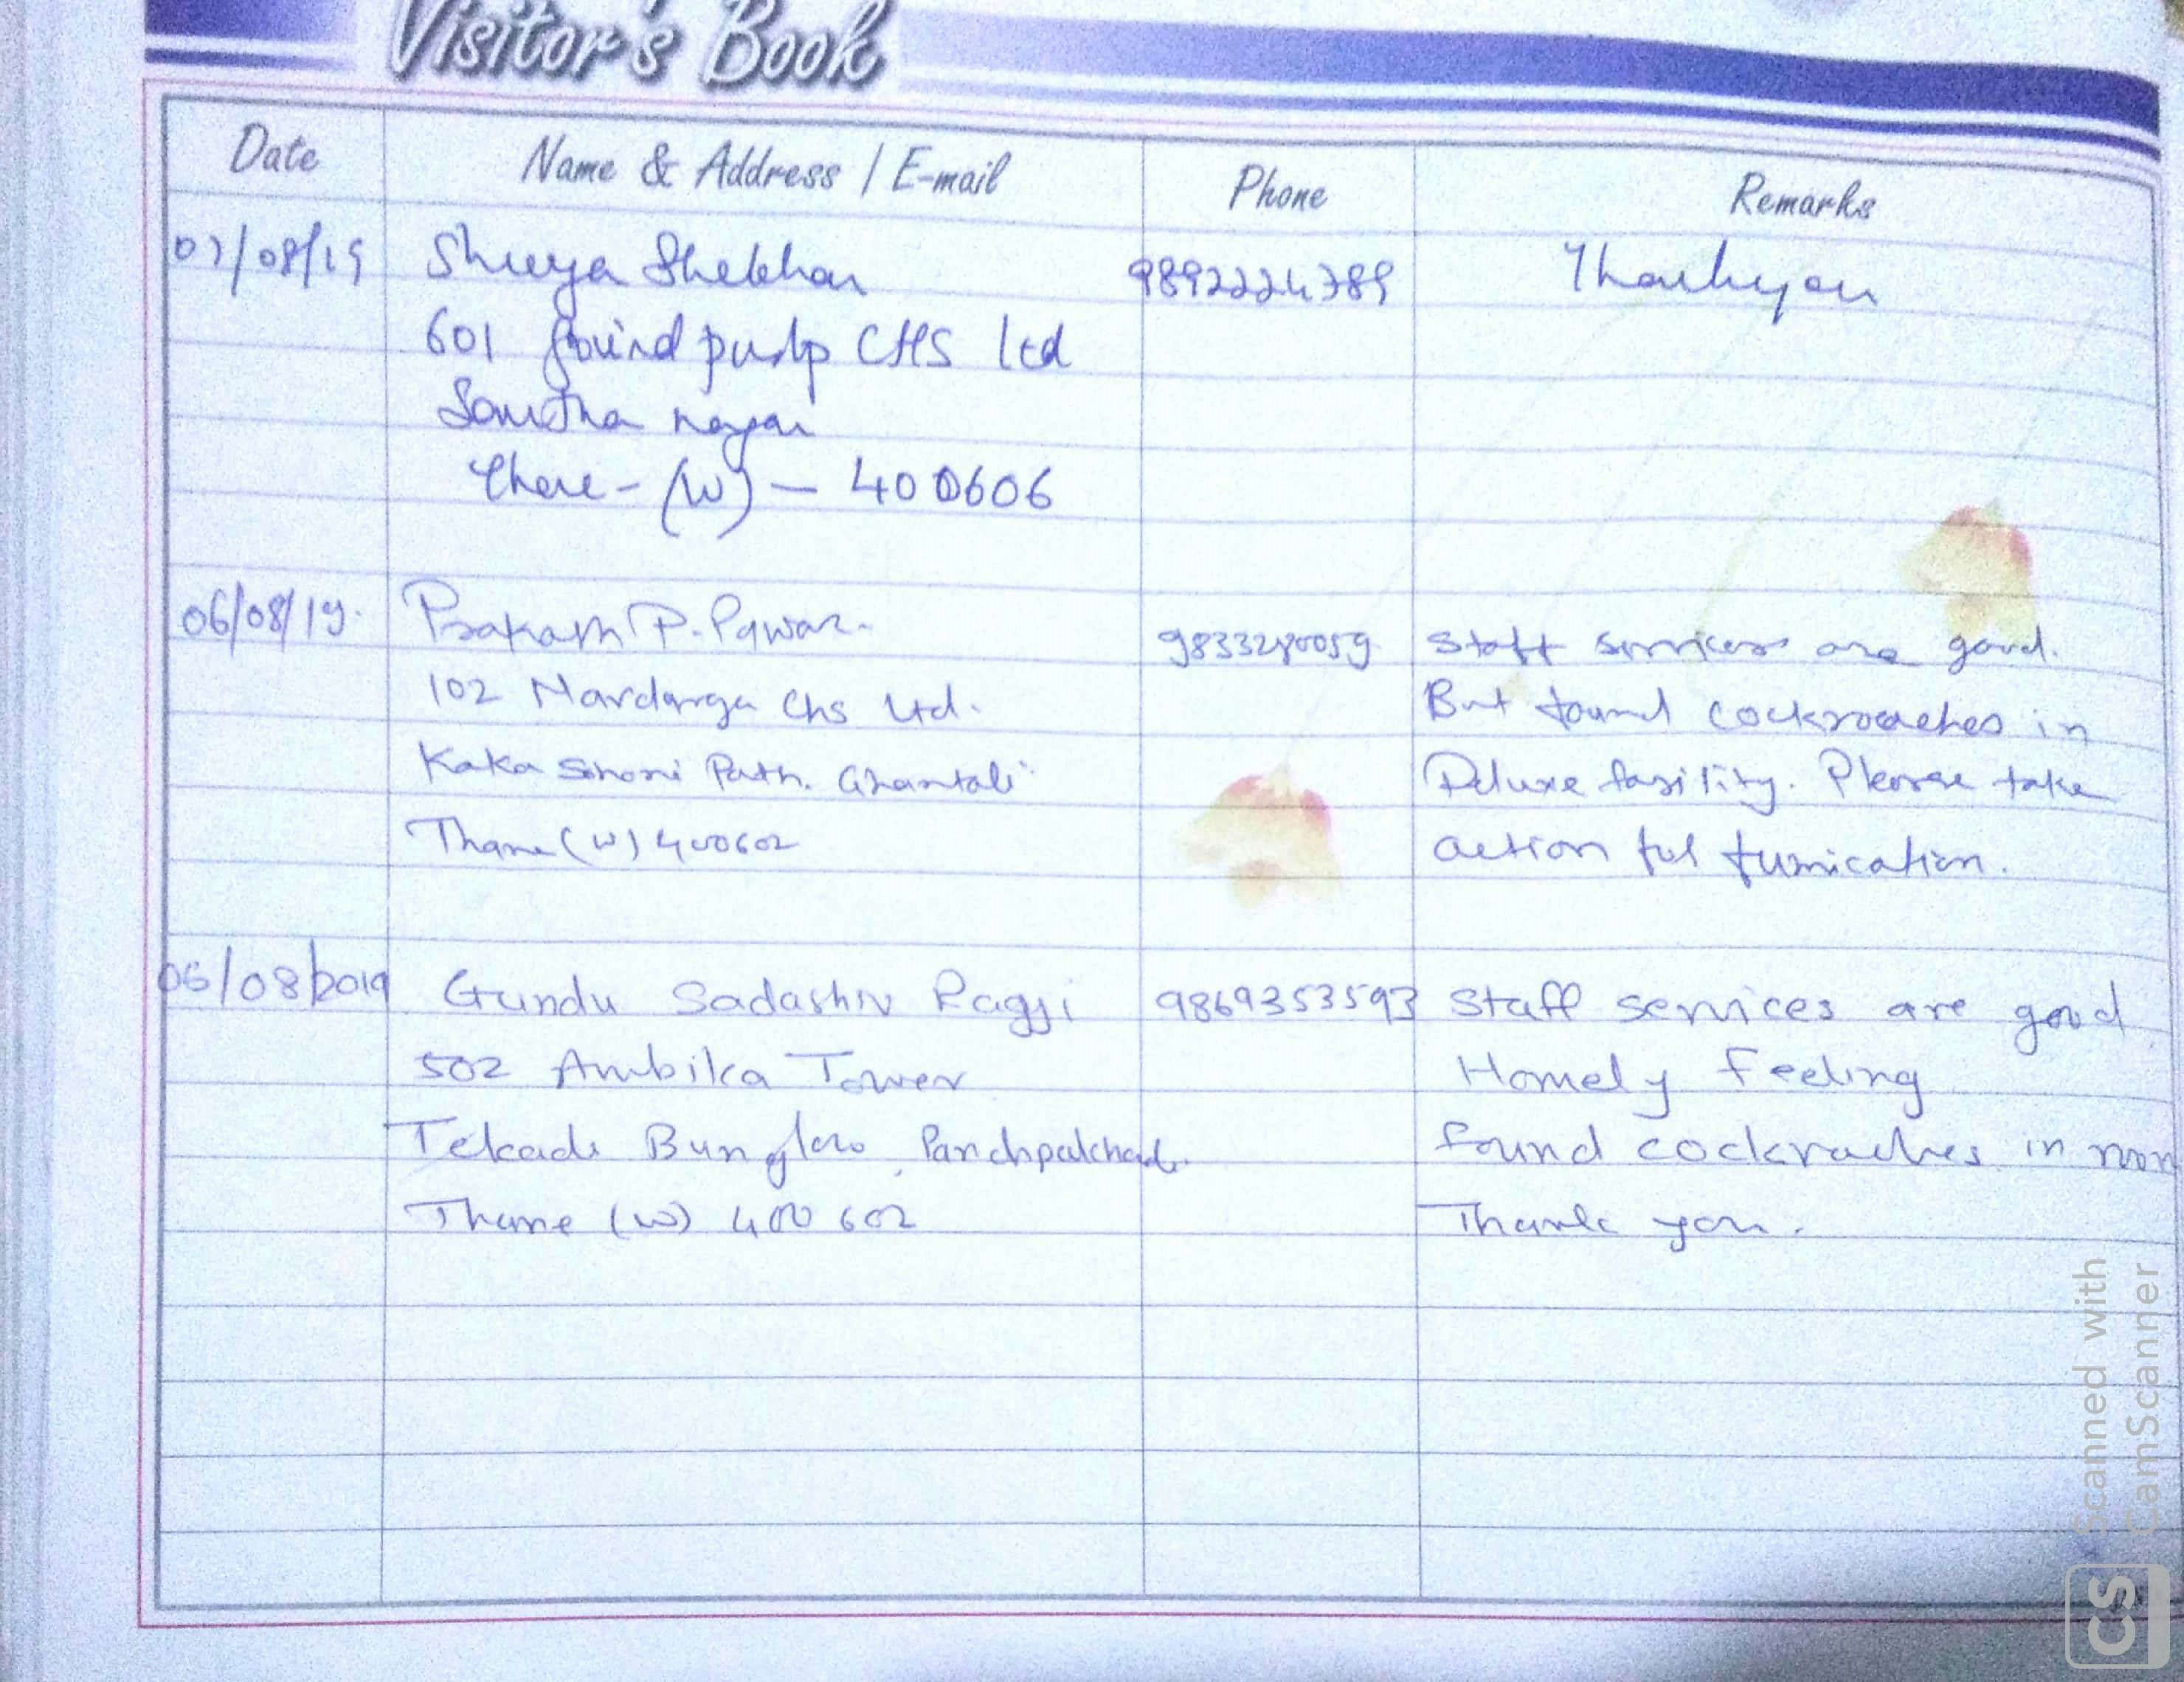 Visitor's Book
Date Name & Address / E-mail Phone Remarks
07/08/19 Shreya Shekhar 9892224789 Thankyou
601 Govind pushp CHS ltd
nagar
Thane - (W) - 400606
06/08/19. Prakash P. Pawar. 9833280059 Staff services are good.
102 Chs Ltd. But found cockroaches in
Kaka Sohoni Path. Ghantali Deluxe fasility. Please take
Thane (W) 400602 action for fumication.
06/08/2019 Gundu Sadashiv Ragji 9869353593 Staff services are good
502 Ambika Tower Homely Feeling
Tekadi Bunglow, found cockraches in room
Thane (W) 400 602 Thank you.
Scanned with
CamScanner
CS